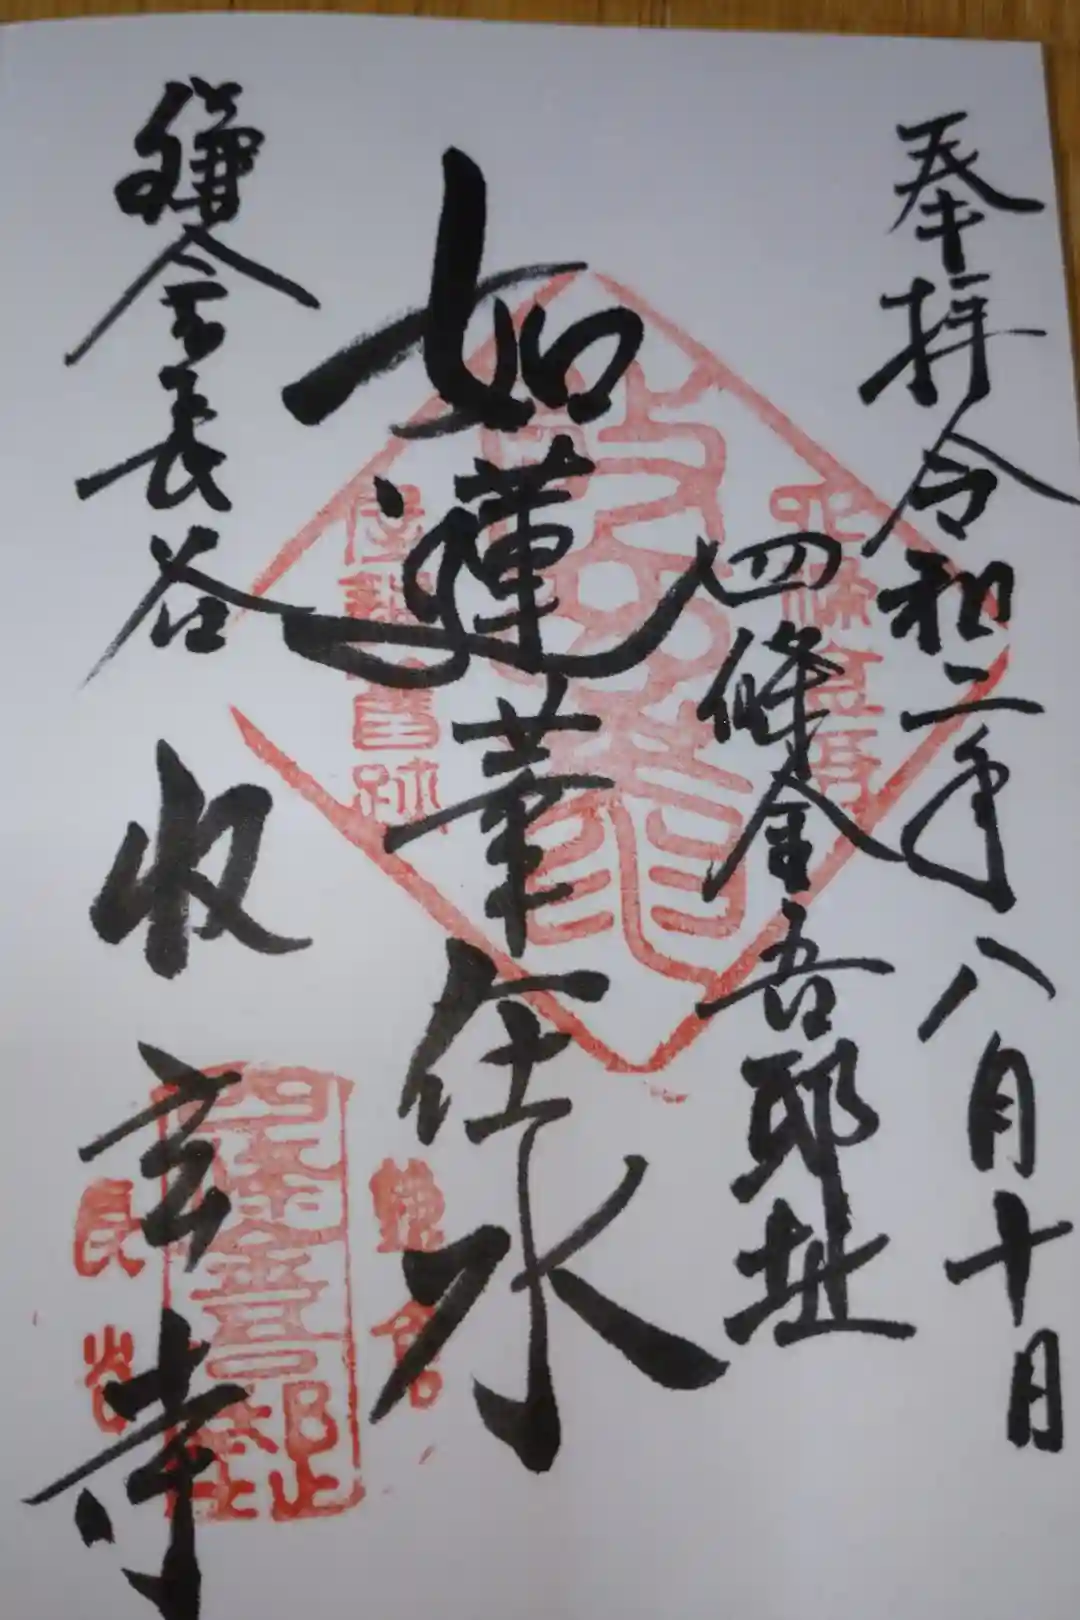 奉拝令和二年八月十日
四條金吾邸址
如蓮華在水
鎌倉長谷
収玄寺
四条金吾邸址
鎌倉
長谷